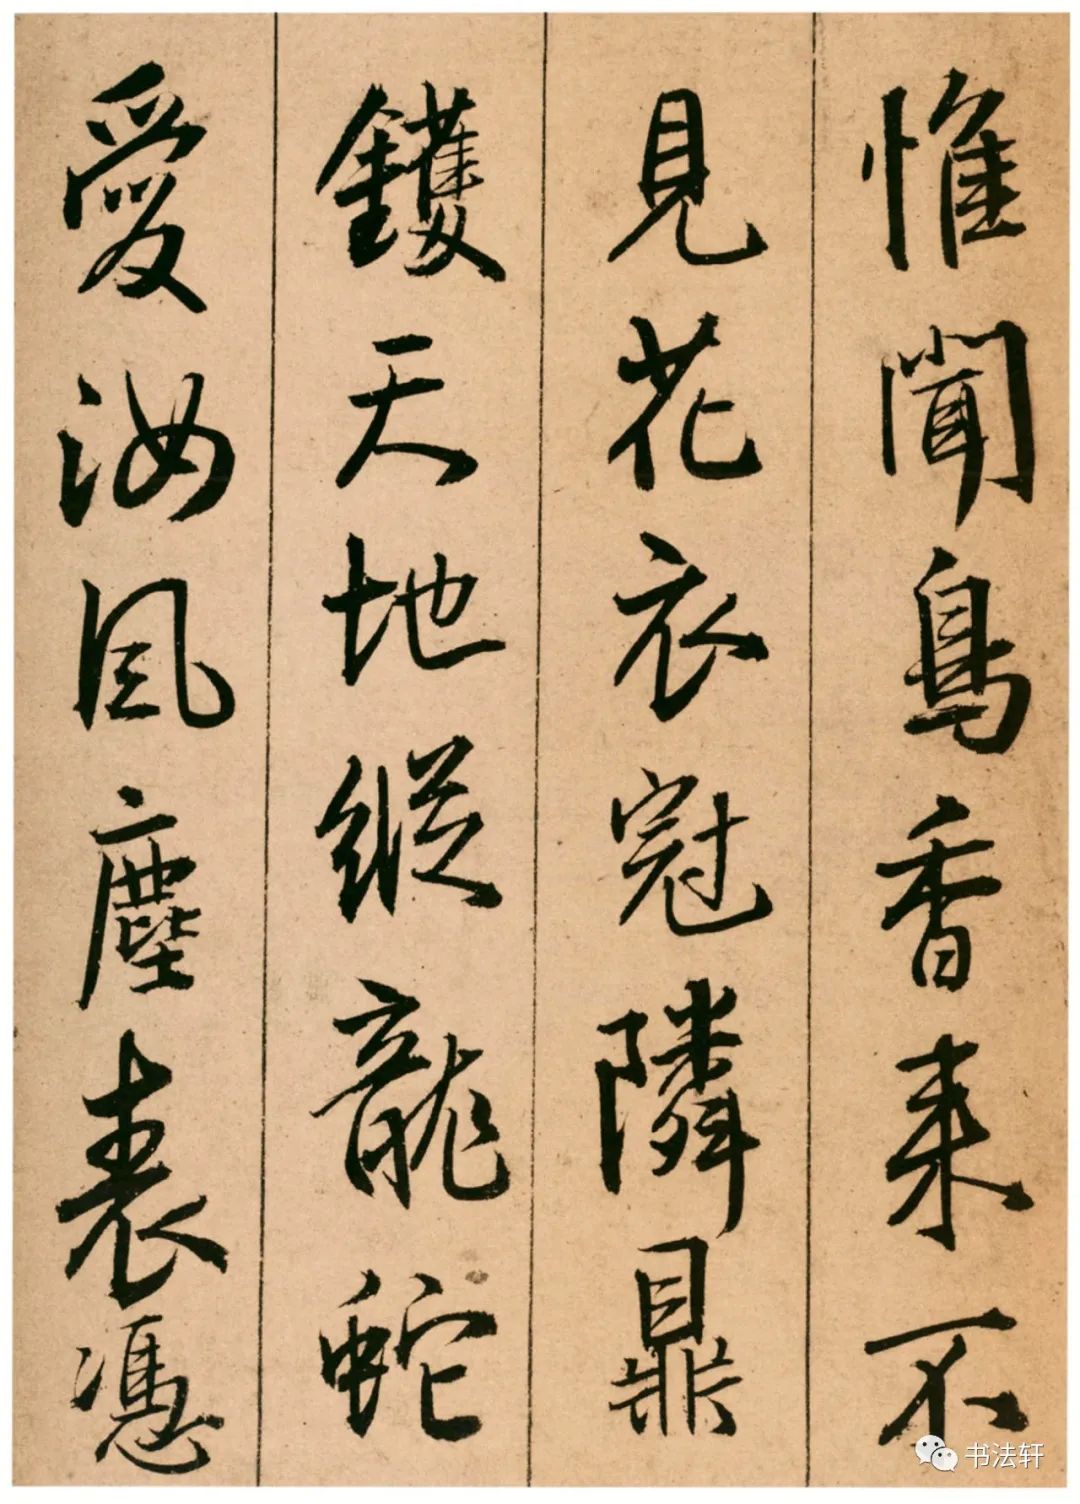 惟聞鳥香来不
見花衣冠隣鼎
鑊天地縱龍蛇
愛汝風塵表憑
书法轩